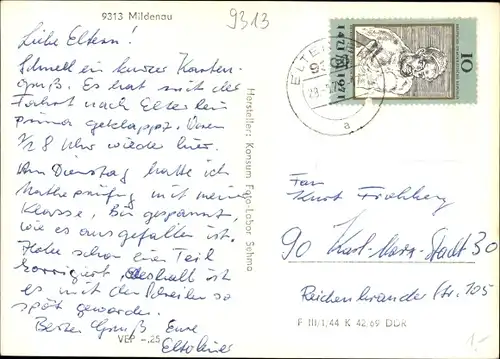 9313 Mildenau
9313
Liebe Eltern!
Schnell ein kurzer Karten-
gruß. Es hat mit der
Fahrt nach Elterlein
prima geklappt. Waren
1/2 8 Uhr wieder hier.
Am Dienstag hatte ich
Matheprüfung mit meiner
Klasse. Bin gespannt,
wie es ausgefallen ist.
Habe schon einen Teil
korrigiert, deshalb ist
es mit dem Schreiben so
spät geworden.
Besten Gruß Eure
VEP -,25
Hersteller: Konsum Foto-Labor Sehma
ELTE
93
a
10
1471-1971
Fam
Kurt Fröhberg
90 Karl-Marx-Stadt 30
Reichenhainer Str. 105
F III/1/44 K 42/69 DDR
1.-